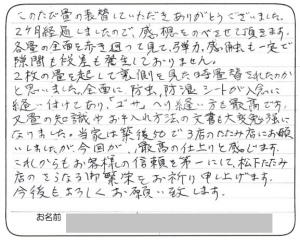 このたび畳の表替していただきありがとうございました。
2ヶ月経過しましたので、感想をのべさせて頂きます。
各畳の全面を歩き廻って見て、弾力、感触も一定で
隙間も段差も発生しておりません。
2枚の畳を起して裏側を見た時畳替されたのか
と思いました。全面に防虫、防湿シートが入念に
縫い付けてあり、ゴザ、へり縫い方も最高です。
又畳の知識やお手入れ方法の文書も大変勉強に
なりました。当家は築後50年で3店のたたみ店にお願
いしましたが、今回が、最高の仕上りと感じます。
これからもお客様の信頼を第一にして、松下たたみ
店のさらなる御繁栄をお祈り申し上げます。
今後もよろしくお願い致します。
お名前